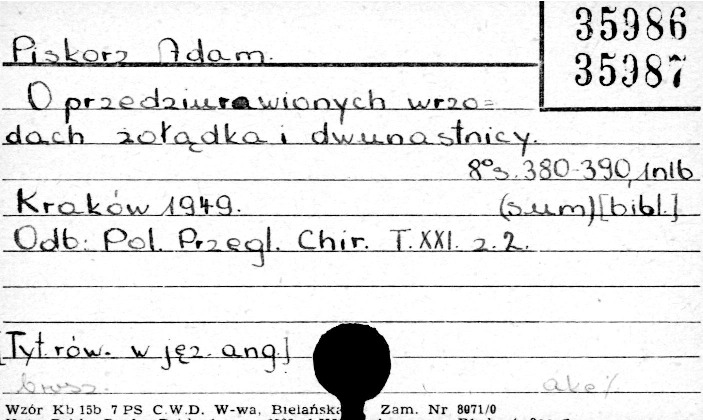 35986
35987
Piskorz Adam.
O przedziurawionych wrzo=
dach żołądka i dwunastnicy.
8° s. 380-390, 1nlb
Kraków 1949. (sum) [bibl.]
Odb: Pol. Przegl. Chir. T. XXI. z. 2.
[Tyt. rów. w jęz. ang.]
brosz.
Wzór Kb 15b 7 PS C.W.D. W-wa, Bielańska Zam. Nr 8071/0